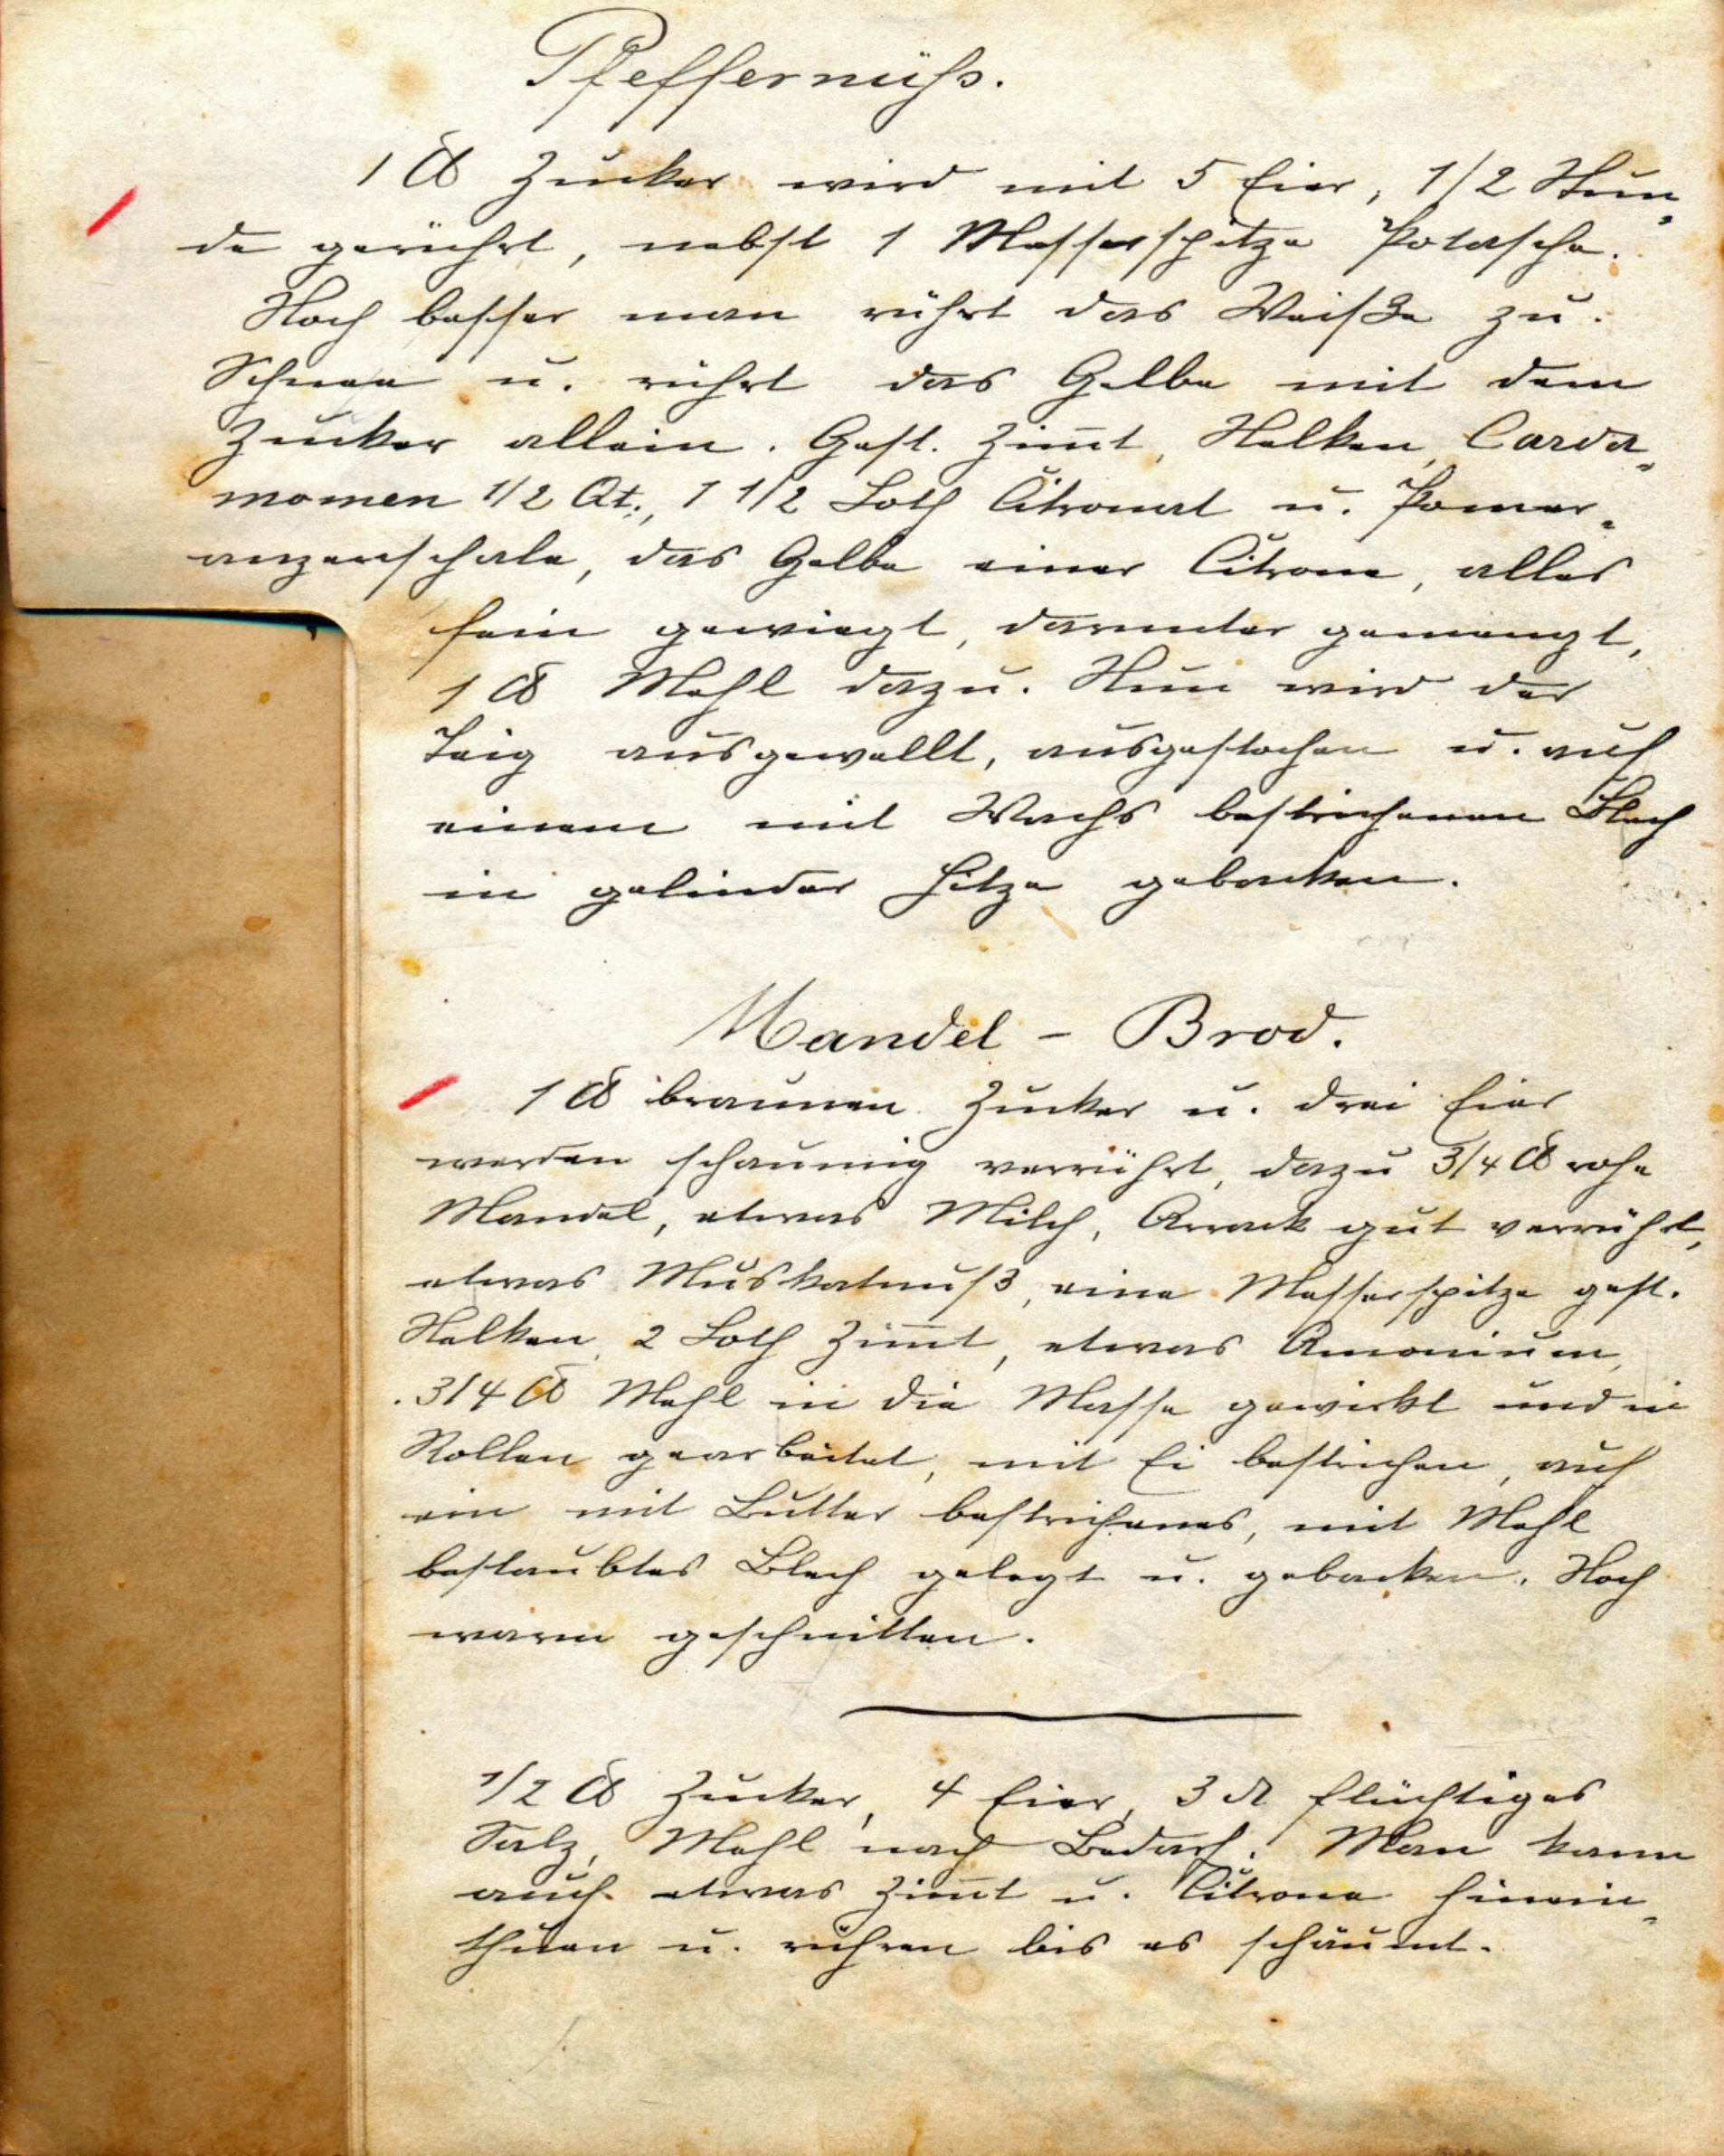 Pfeffernüss.
1 ℔ Zucker wird mit 5 Eier, 1/2 Stun-
de gerührt, nebst 1 Messerspitze Potasche.
Noch besser man rührt das Weiße zu
Schnee u. rührt das Gelbe mit dem
Zucker allein. Gest. Zim̄t, Nelken, Carda-
momen 1/2 Qt., 1 1/2 Loth Citronat u. Pomer-
anzenschale, das Gelbe einer Citrone, alles
fein gewiegt, darunter gemengt,
1 ℔ Mehl dazu. Nun wird der
Teig ausgewellt, ausgestochen u. auf
einem mit Wachs bestrichenen Blech
in gelinder Hitze gebacken.
Mandel - Brod.
1 ℔ braunen Zucker u. drei Eier
werden schaumig verrührt, dazu 3/4 ℔ rohe
Mandel, etwas Milch, Arrack gut verrührt,
etwas Muskatnuß, eine Messerspitze gest.
Nelken, 2 Loth Zim̄t, etwas Amonium,
3/4 ℔ Mehl in die Masse gewirkt und in
Rollen gearbeitet, mit Ei bestrichen, auf
ein mit Butter bestrichenes, mit Mehl
bestaubtes Blech gelegt u. gebacken. Noch
warm geschnitten.
1/2 ℔ Zucker, 4 Eier, 3 flüchtiges
Salz, Mehl nach Bedarf. Man kann
auch etwas Zim̄t u. Citrone hinein-
thuen u. rühren bis es schäumt.